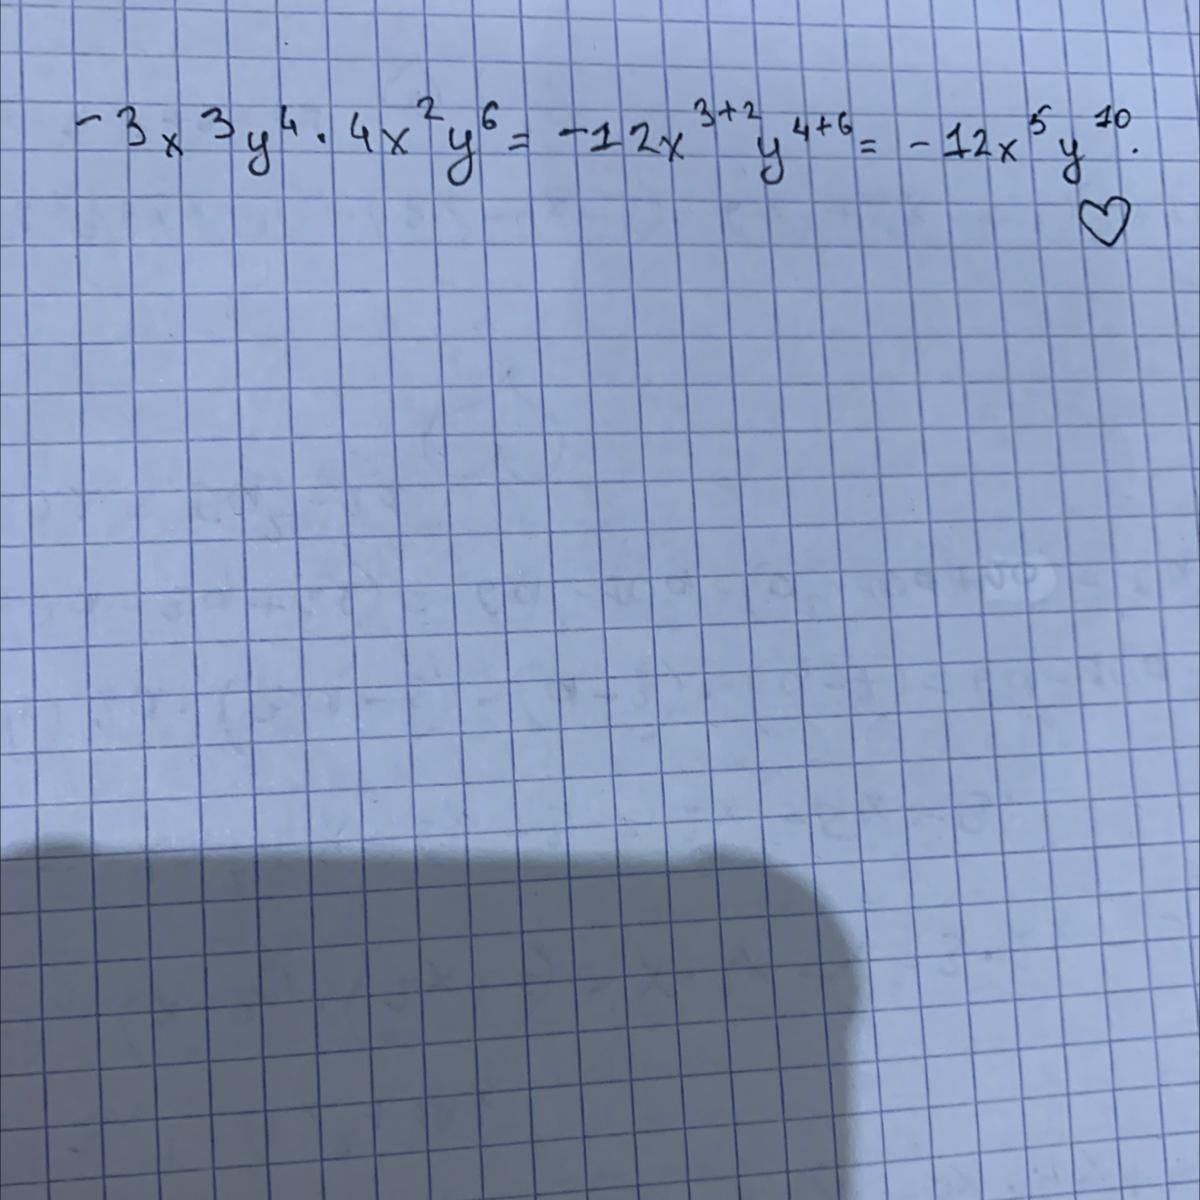 -3x³y⁴·4x²y⁶= -12x³⁺²y⁴⁺⁶= -12x⁵y¹⁰.